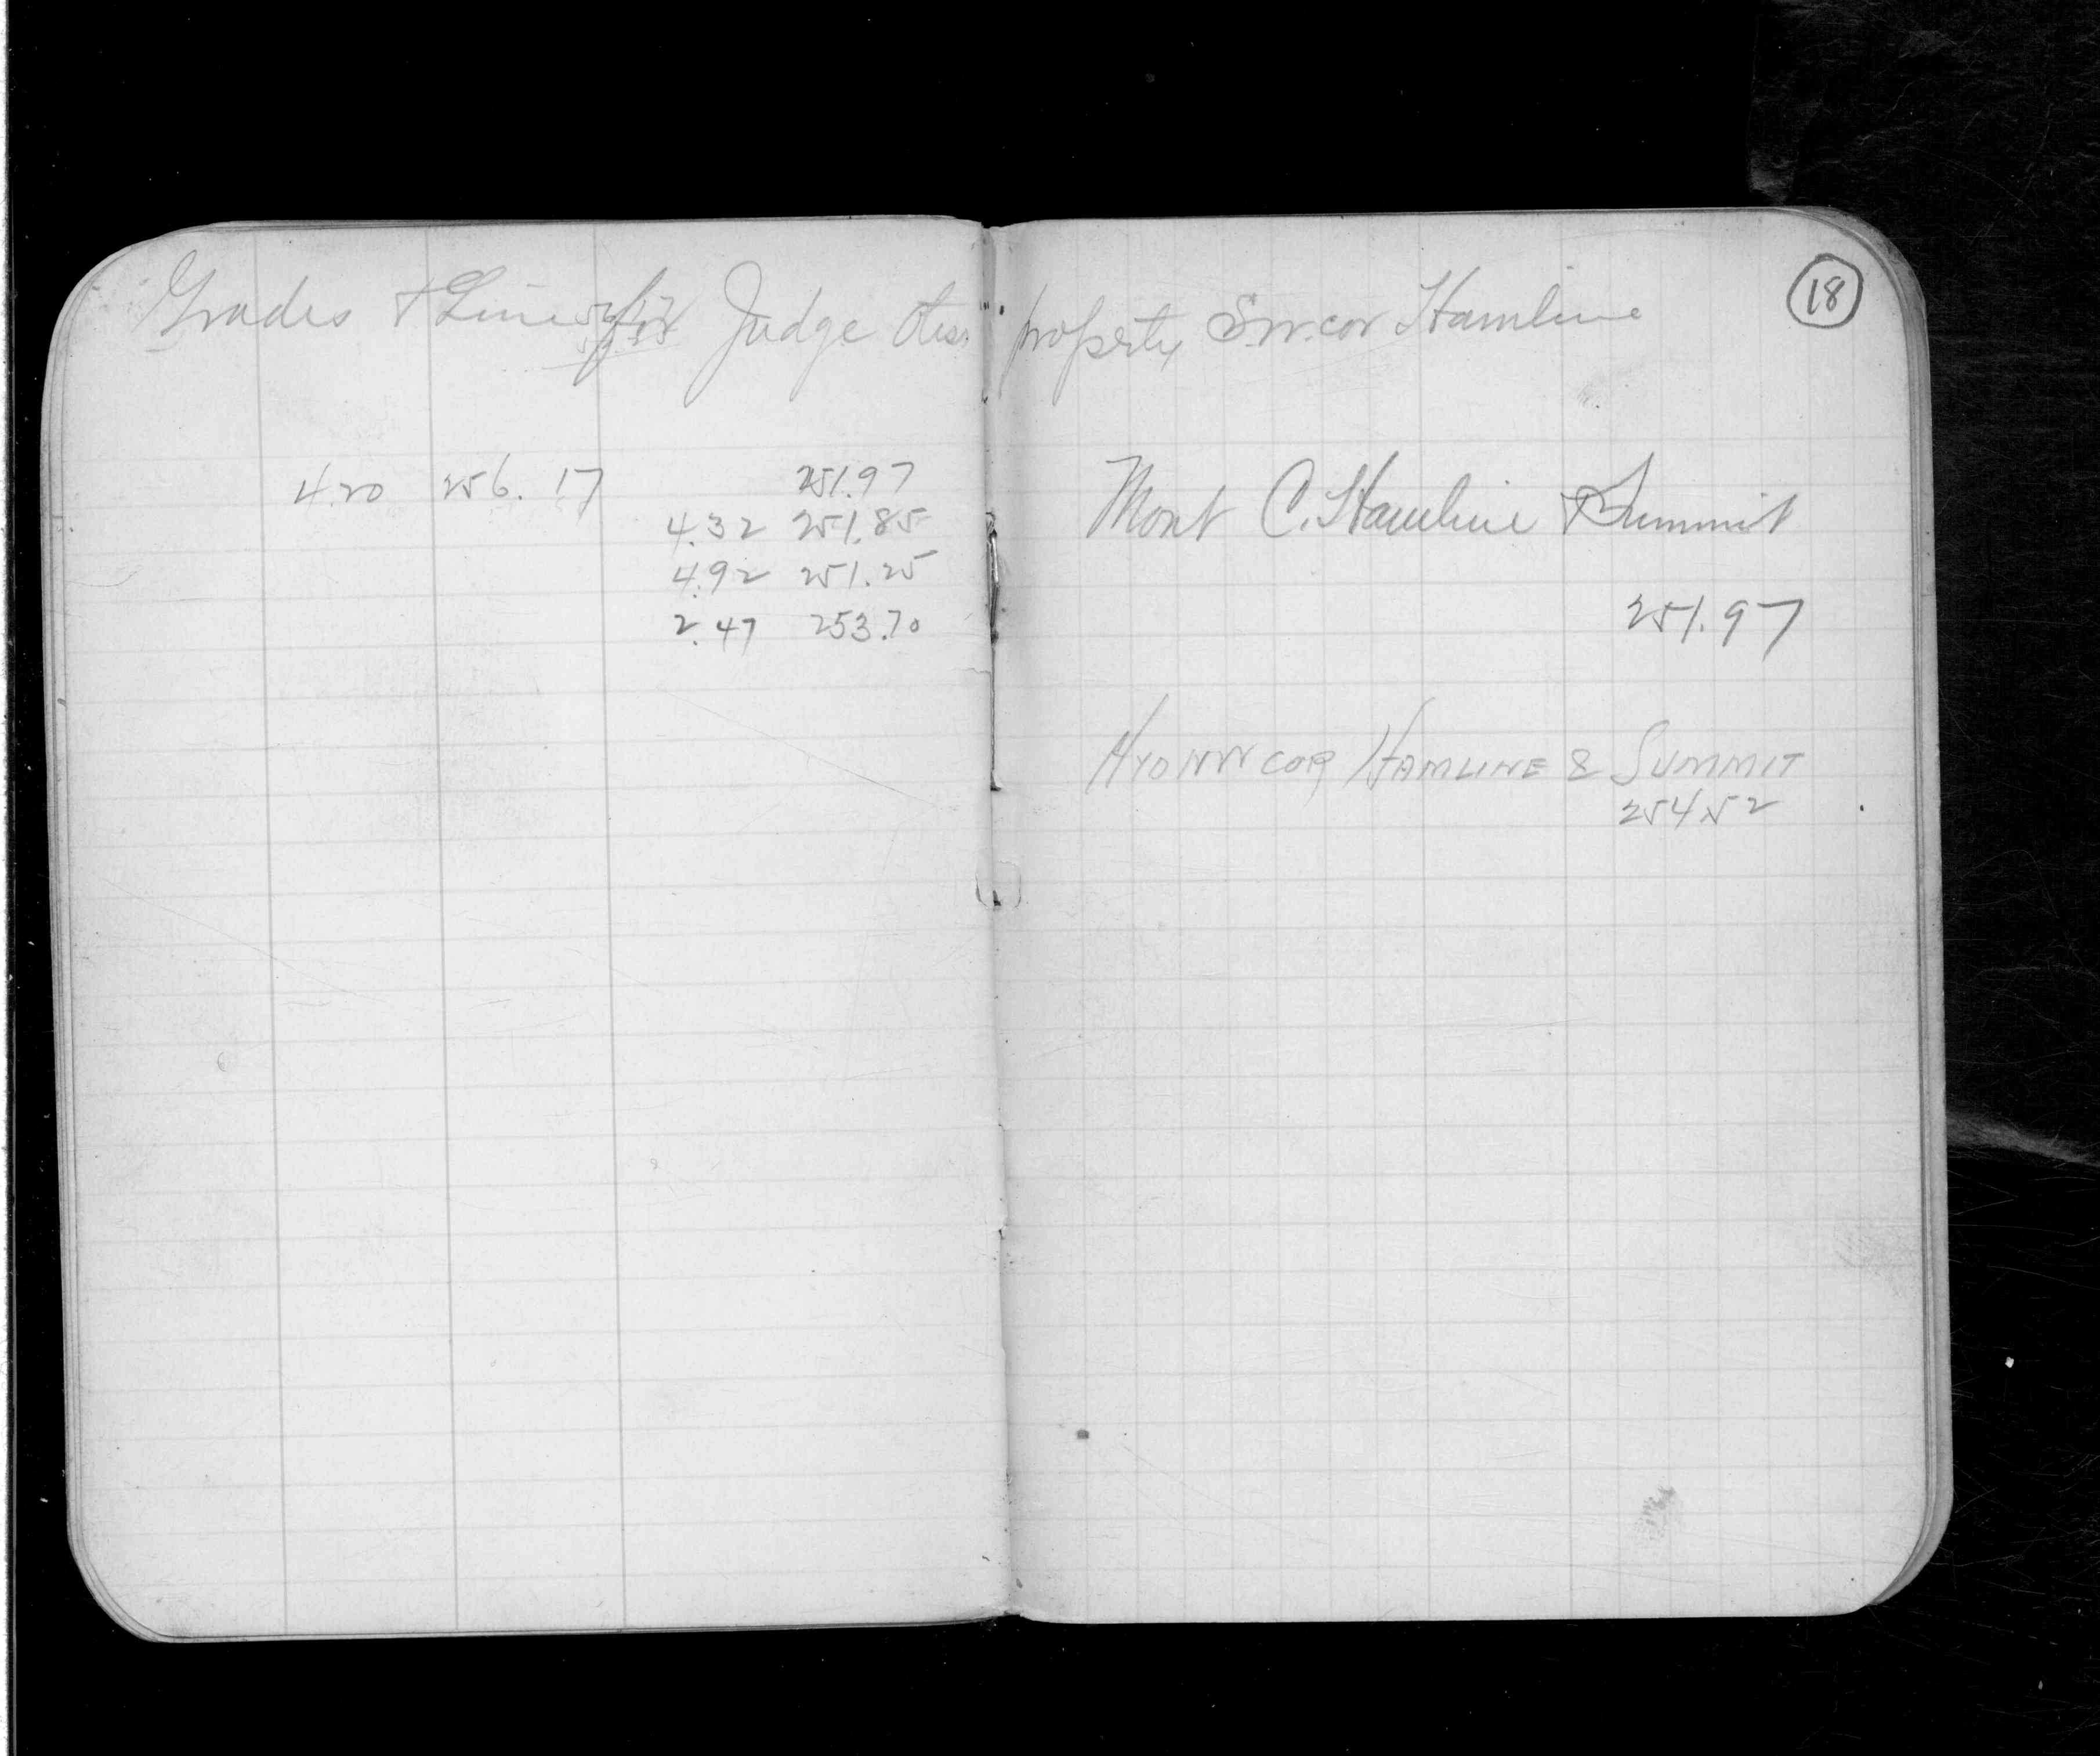 Grades & Lines for Judge Otis property S.W. cor Hamline
18
4.20 256.17 251.97
4.32 251.85
4.92 251.25
2.47 253.70
Mont C. Hamline & Summit
251.97
HYD NW COR HAMLINE & SUMMIT
254.52